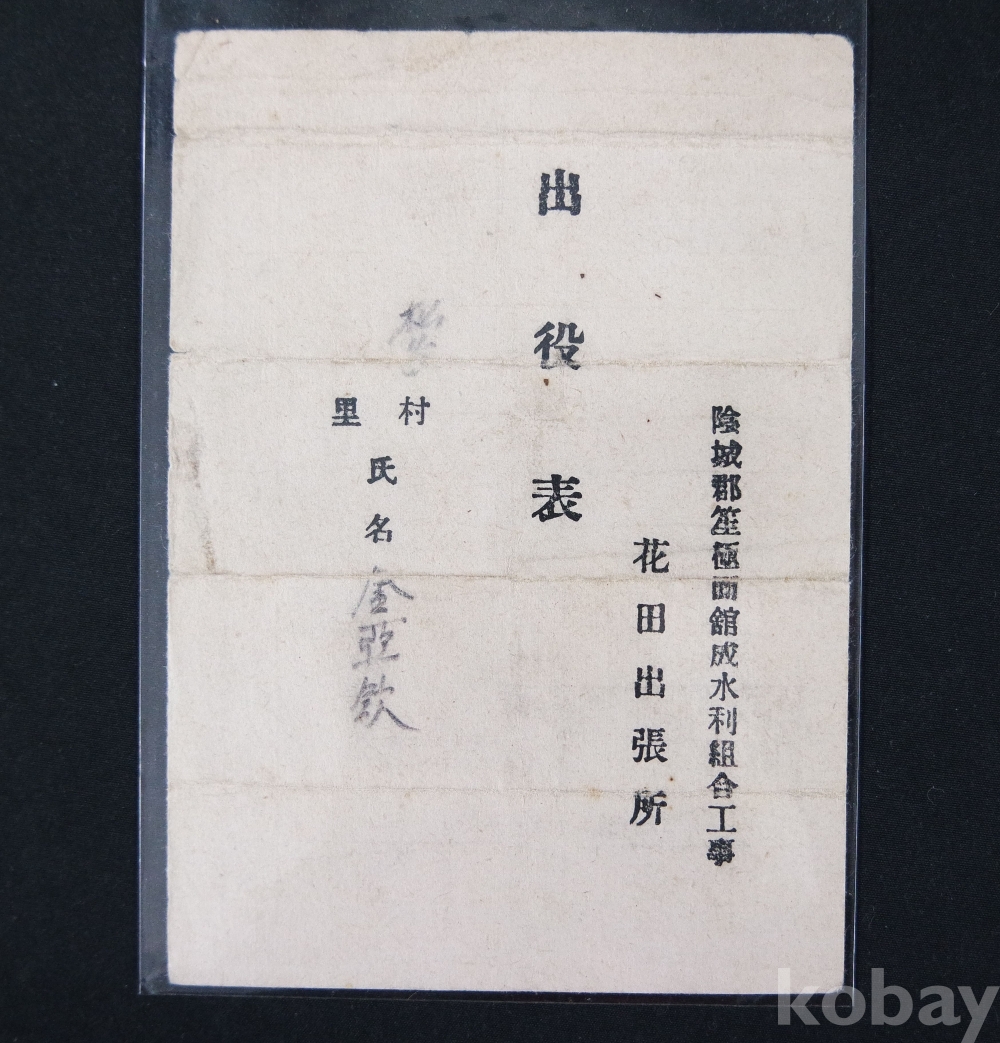 陰城郡笙極面舘成水利組合工事
花田出張所
出役表
村
里
氏名 金亞欽
kobay